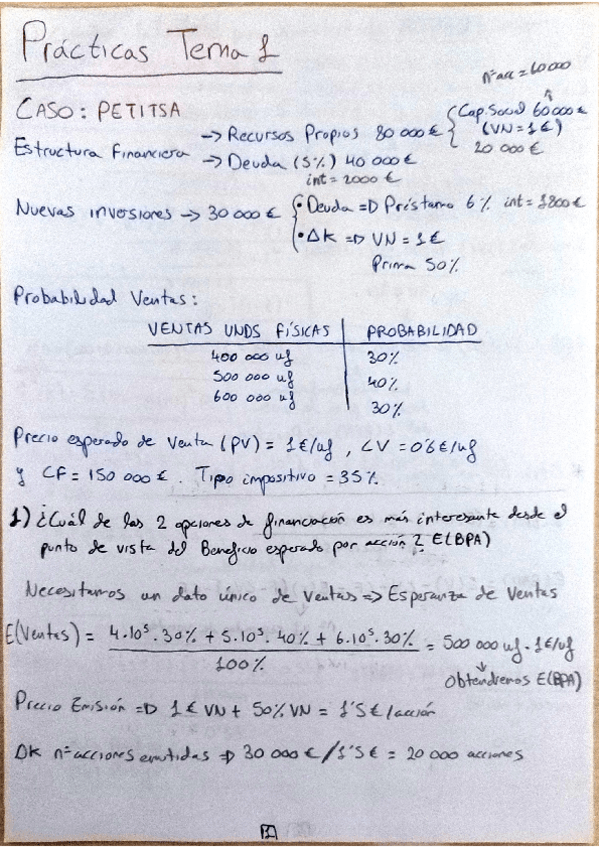 Prácticas Tema 1
nº acc = 60000
CASO: PETITSA
Estructura Financiera
→ Recursos Propios 80 000 € { Cap. Social 60 000 €
(VN = 1 €)
20 000 €
→ Deuda (5%) 40 000 €
int = 2000 €
Nuevas inversiones → 30 000 € { • Deuda => Préstamo 6% int = 1800 €
• ΔK => VN = 1 €
Prima 50%
Probabilidad Ventas:
VENTAS UNDS FÍSICAS | PROBABILIDAD
400 000 uf 30%
500 000 uf 40%
600 000 uf 30%
Precio esperado de Venta (PV) = 1 €/uf, CV = 0'6 €/uf
y CF = 150 000 €. Tipo impositivo = 35%.
1) ¿Cuál de las 2 opciones de financiación es más interesante desde el
punto de vista del Beneficio esperado por acción? E(BPA)
Necesitamos un dato único de Ventas => Esperanza de Ventas
E(Ventas) = 4·10⁵·30% + 5·10⁵·40% + 6·10⁵·30% / 100% = 500 000 uf · 1 €/uf
↓
Obtendremos E(BPA)
Precio Emisión => 1 € VN + 50% VN = 1'5 €/acción
ΔK nº acciones emitidas => 30 000 € / 1'5 € = 20 000 acciones